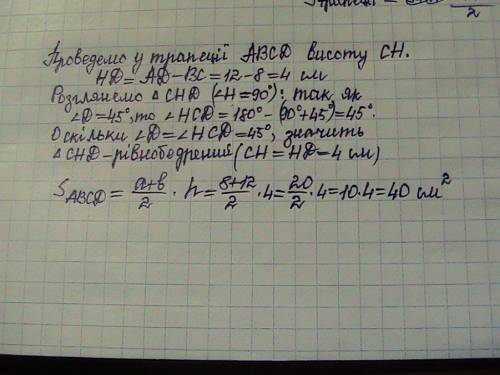 Проведемо у трапеції ABCD висоту CH.
HD=AD-BC=12-8=4 см
Розглянемо △CHD (∠H=90°): так як
∠D=45°, то ∠HCD=180°-(90°+45°)=45°.
Оскільки ∠D=∠HCD=45°, значить
△CHD-рівнобедрений (CH=HD=4 см)
S_ABCD = (a+b)/2 · h = (8+12)/2 · 4 = 20/2 · 4 = 10·4 = 40 см²